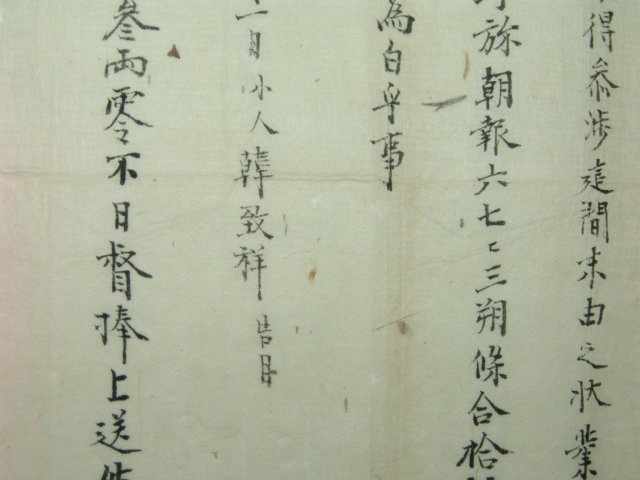 得叅涉這間未由之狀業
旀朝報六七七三朔條合拾
為白乎事
一日小人韓致祥告目
叄兩零不日督捧上送